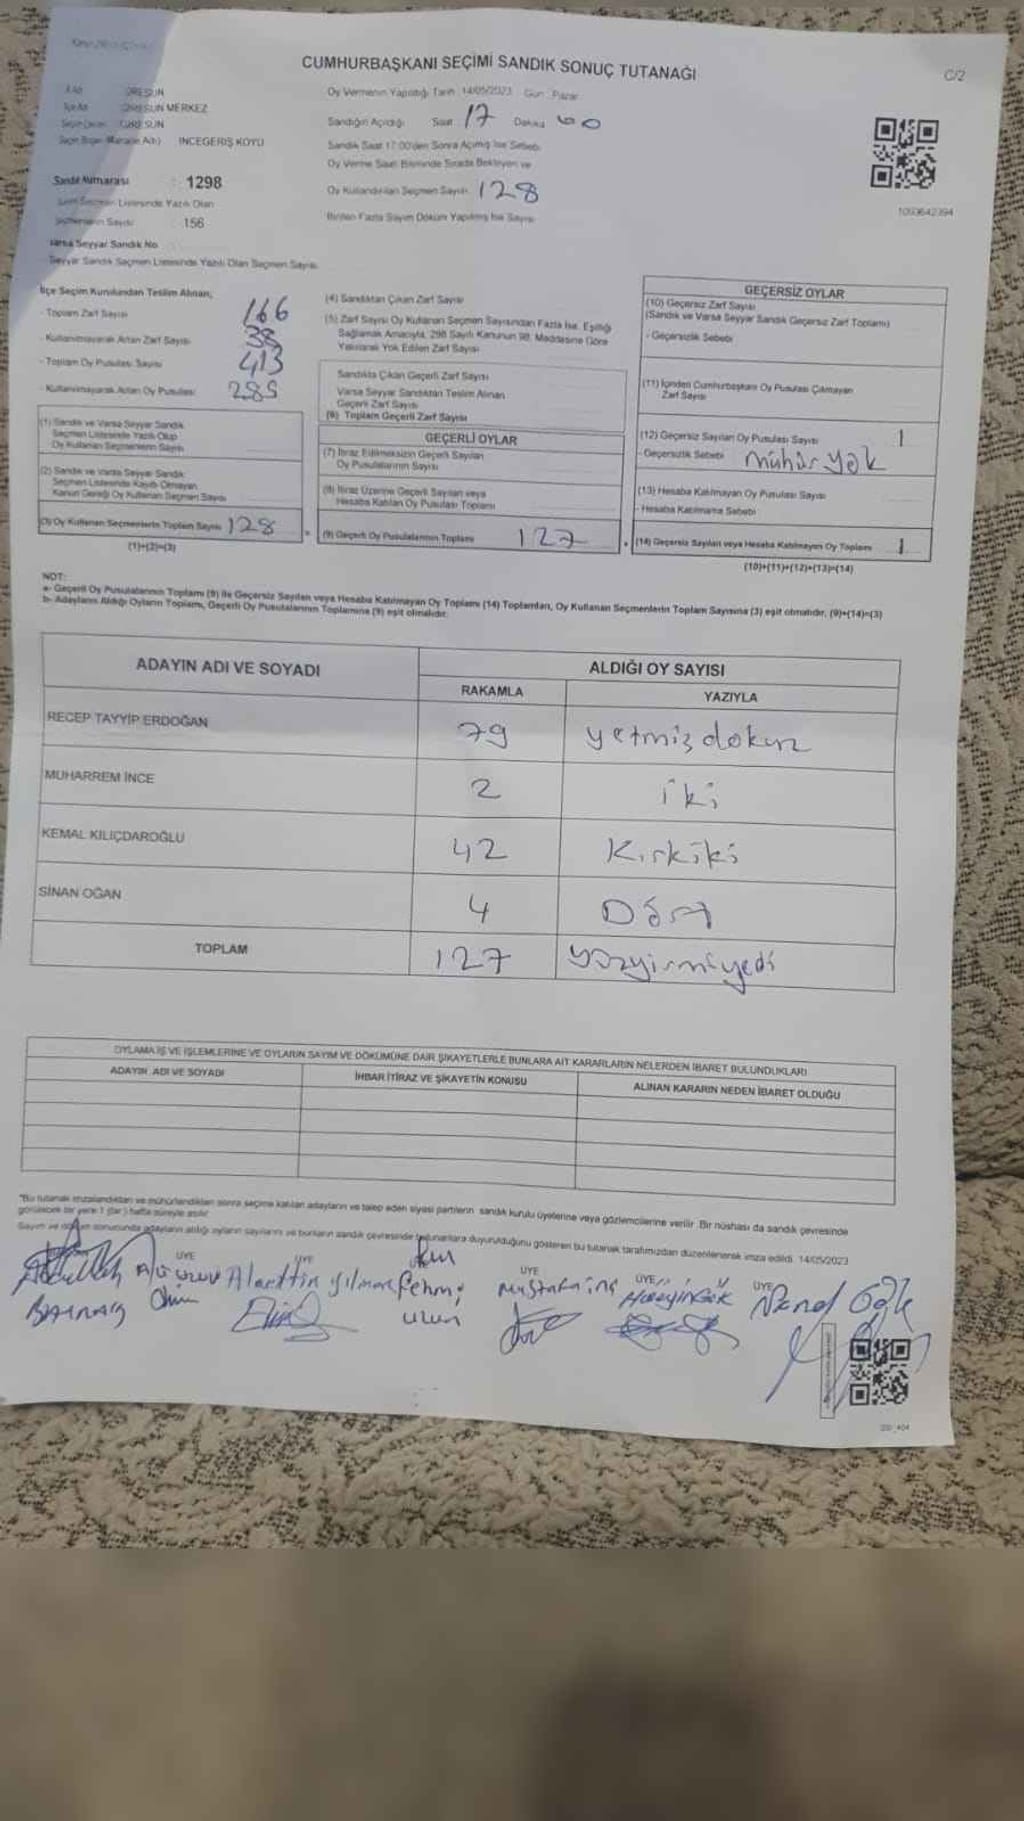 CUMHURBAŞKANI SEÇİMİ SANDIK SONUÇ TUTANAĞI
C/2
İl Adı GİRESUN
İlçe Adı GİRESUN MERKEZ
Seçim Çevresi GİRESUN
İNCEGERİŞ KÖYÜ
Sandık Numarası : 1298
Sandık Seçmen Listesinde Yazılı Olan
Seçmenlerin Sayısı : 156
Varsa Seyyar Sandık No
Seyyar Sandık Seçmen Listesinde Yazılı Olan Seçmen Sayısı
Oy Vermenin Yapıldığı Tarih : 14/05/2023 Gün : Pazar
Sandığın Açıldığı Saat : 17 Dakika 00
Sandık Saat 17:00'den Sonra Açılmış İse Sebebi
Oy Verme Saati Bitiminde Sırada Bekleyen ve
Oy Kullandırılan Seçmen Sayısı : 128
Birden Fazla Sayım Döküm Yapılmış İse Sayısı
1093642394
İlçe Seçim Kurulundan Teslim Alınan;
- Toplam Zarf Sayısı 166
- Kullanılmayarak Artan Zarf Sayısı 38
- Toplam Oy Pusulası Sayısı 413
- Kullanılmayarak Artan Oy Pusulası 285
(1) Sandık ve Varsa Seyyar Sandık
Seçmen Listesinde Yazılı Olup
Oy Kullanan Seçmenlerin Sayısı
(2) Sandık ve Varsa Seyyar Sandık
Seçmen Listesinde Kayıtlı Olmayan
Kanun Gereği Oy Kullanan Seçmen Sayısı
(3) Oy Kullanan Seçmenlerin Toplam Sayısı 128
(1)+(2)=(3)
(4) Sandıktan Çıkan Zarf Sayısı
(5) Zarf Sayısı Oy Kullanan Seçmen Sayısından Fazla İse, Eşitliği
Sağlamak Amacıyla, 298 Sayılı Kanunun 98. Maddesine Göre
Yakılarak Yok Edilen Zarf Sayısı
Sandıkta Çıkan Geçerli Zarf Sayısı
Varsa Seyyar Sandıktan Teslim Alınan
Geçerli Zarf Sayısı
(6) Toplam Geçerli Zarf Sayısı
GEÇERLİ OYLAR
(7) İtiraz Edilmeksizin Geçerli Sayılan
Oy Pusulalarının Sayısı
(8) İtiraz Üzerine Geçerli Sayılan veya
Hesaba Katılan Oy Pusulası Toplamı
(9) Geçerli Oy Pusulalarının Toplamı 127
GEÇERSİZ OYLAR
(10) Geçersiz Zarf Sayısı
(Sandık ve Varsa Seyyar Sandık Geçersiz Zarf Toplamı)
- Geçersizlik Sebebi
(11) İçinden Cumhurbaşkanı Oy Pusulası Çıkmayan
Zarf Sayısı
(12) Geçersiz Sayılan Oy Pusulası Sayısı 1
- Geçersizlik Sebebi mühür yok
(13) Hesaba Katılmayan Oy Pusulası Sayısı
- Hesaba Katılmama Sebebi
(14) Geçersiz Sayılan veya Hesaba Katılmayan Oy Toplamı 1
(10)+(11)+(12)+(13)=(14)
NOT:
a- Geçerli Oy Pusulalarının Toplamı (9) ile Geçersiz Sayılan veya Hesaba Katılmayan Oy Toplamı (14) Toplamları, Oy Kullanan Seçmenlerin Toplam Sayısına (3) eşit olmalıdır. (9)+(14)=(3)
b- Adayların Aldığı Oyların Toplamı, Geçerli Oy Pusulalarının Toplamına (9) eşit olmalıdır.
ADAYIN ADI VE SOYADI
ALDIĞI OY SAYISI
RAKAMLA YAZIYLA
RECEP TAYYİP ERDOĞAN 79 yetmiş dokuz
MUHARREM İNCE 2 iki
KEMAL KILIÇDAROĞLU 42 Kırkiki
SİNAN OĞAN 4 Dört
TOPLAM 127 yüzyirmiyedi
OYLAMA İŞ VE İŞLEMLERİNE VE OYLARIN SAYIM VE DÖKÜMÜNE DAİR ŞİKAYETLERLE BUNLARA AİT KARARLARIN NELERDEN İBARET BULUNDUKLARI
ADAYIN ADI VE SOYADI İHBAR İTİRAZ VE ŞİKAYETİN KONUSU ALINAN KARARIN NEDEN İBARET OLDUĞU
"Bu tutanak imzalandıktan ve mühürlendikten sonra seçime katılan adayların ve talep eden siyasi partilerin sandık kurulu üyelerine veya gözlemcilerine verilir. Bir nüshası da sandık çevresinde
görülecek bir yere 1 (bir) hafta süreyle asılır.
Sayım ve döküm sonucunda adayların aldığı oyların sayılarını ve bunların sandık çevresinde bulunanlara duyurulduğunu gösteren bu tutanak tarafımızdan düzenlenerek imza edildi. 14/05/2023
ÜYE ÜYE ÜYE ÜYE ÜYE
Abdullah Ali uzun Alaettin yılmaz Fehmi Mustafa inç Hüseyin Gök Nendl Gök
uzun